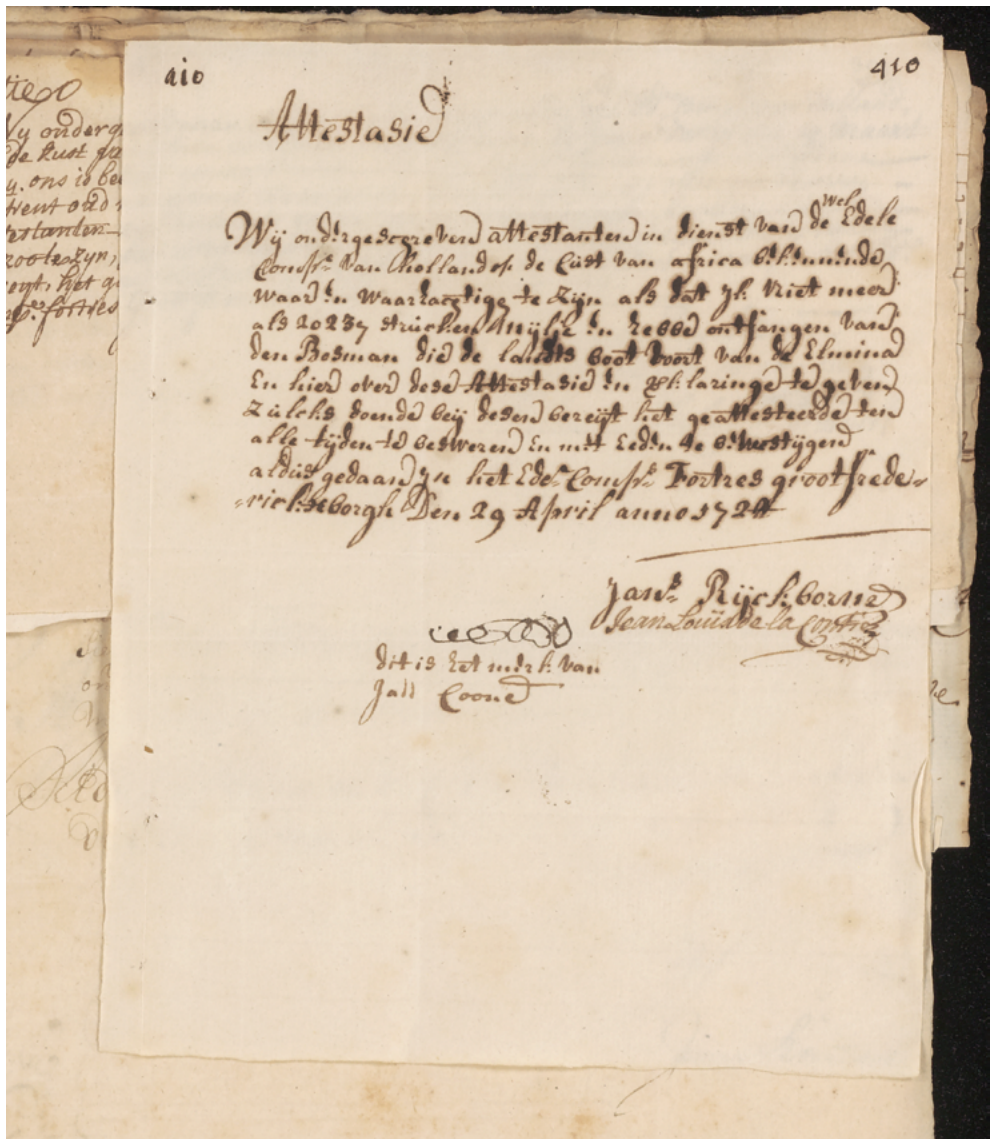 410
410
Attestasie
Wij ondergescreven attestanten in dienst van de Wel Edele
Comps: van Holland op de Cust van africa bekennende
waar en waaracgtige te zijn als dat yk niet meer
als 20237 stucken en hebbe ontfangen van
den Bosman die de landts boot voort van de Elmina
En hier over dese Attestasie en verklaringe te geven
Zulcks doende beij desen bereijt het geattesteerde ten
alle tijden te besweren En met Eeden te bevestijgen
aldus gedaan yn het Ede: Comps: Fortres groot frede-
-ricksborgh Den 29 April anno 1724
Jan Rijckborne
Jean Louis de la
dit is het merk van
Jall Coone
Wy onderg
de Kust
ons is be